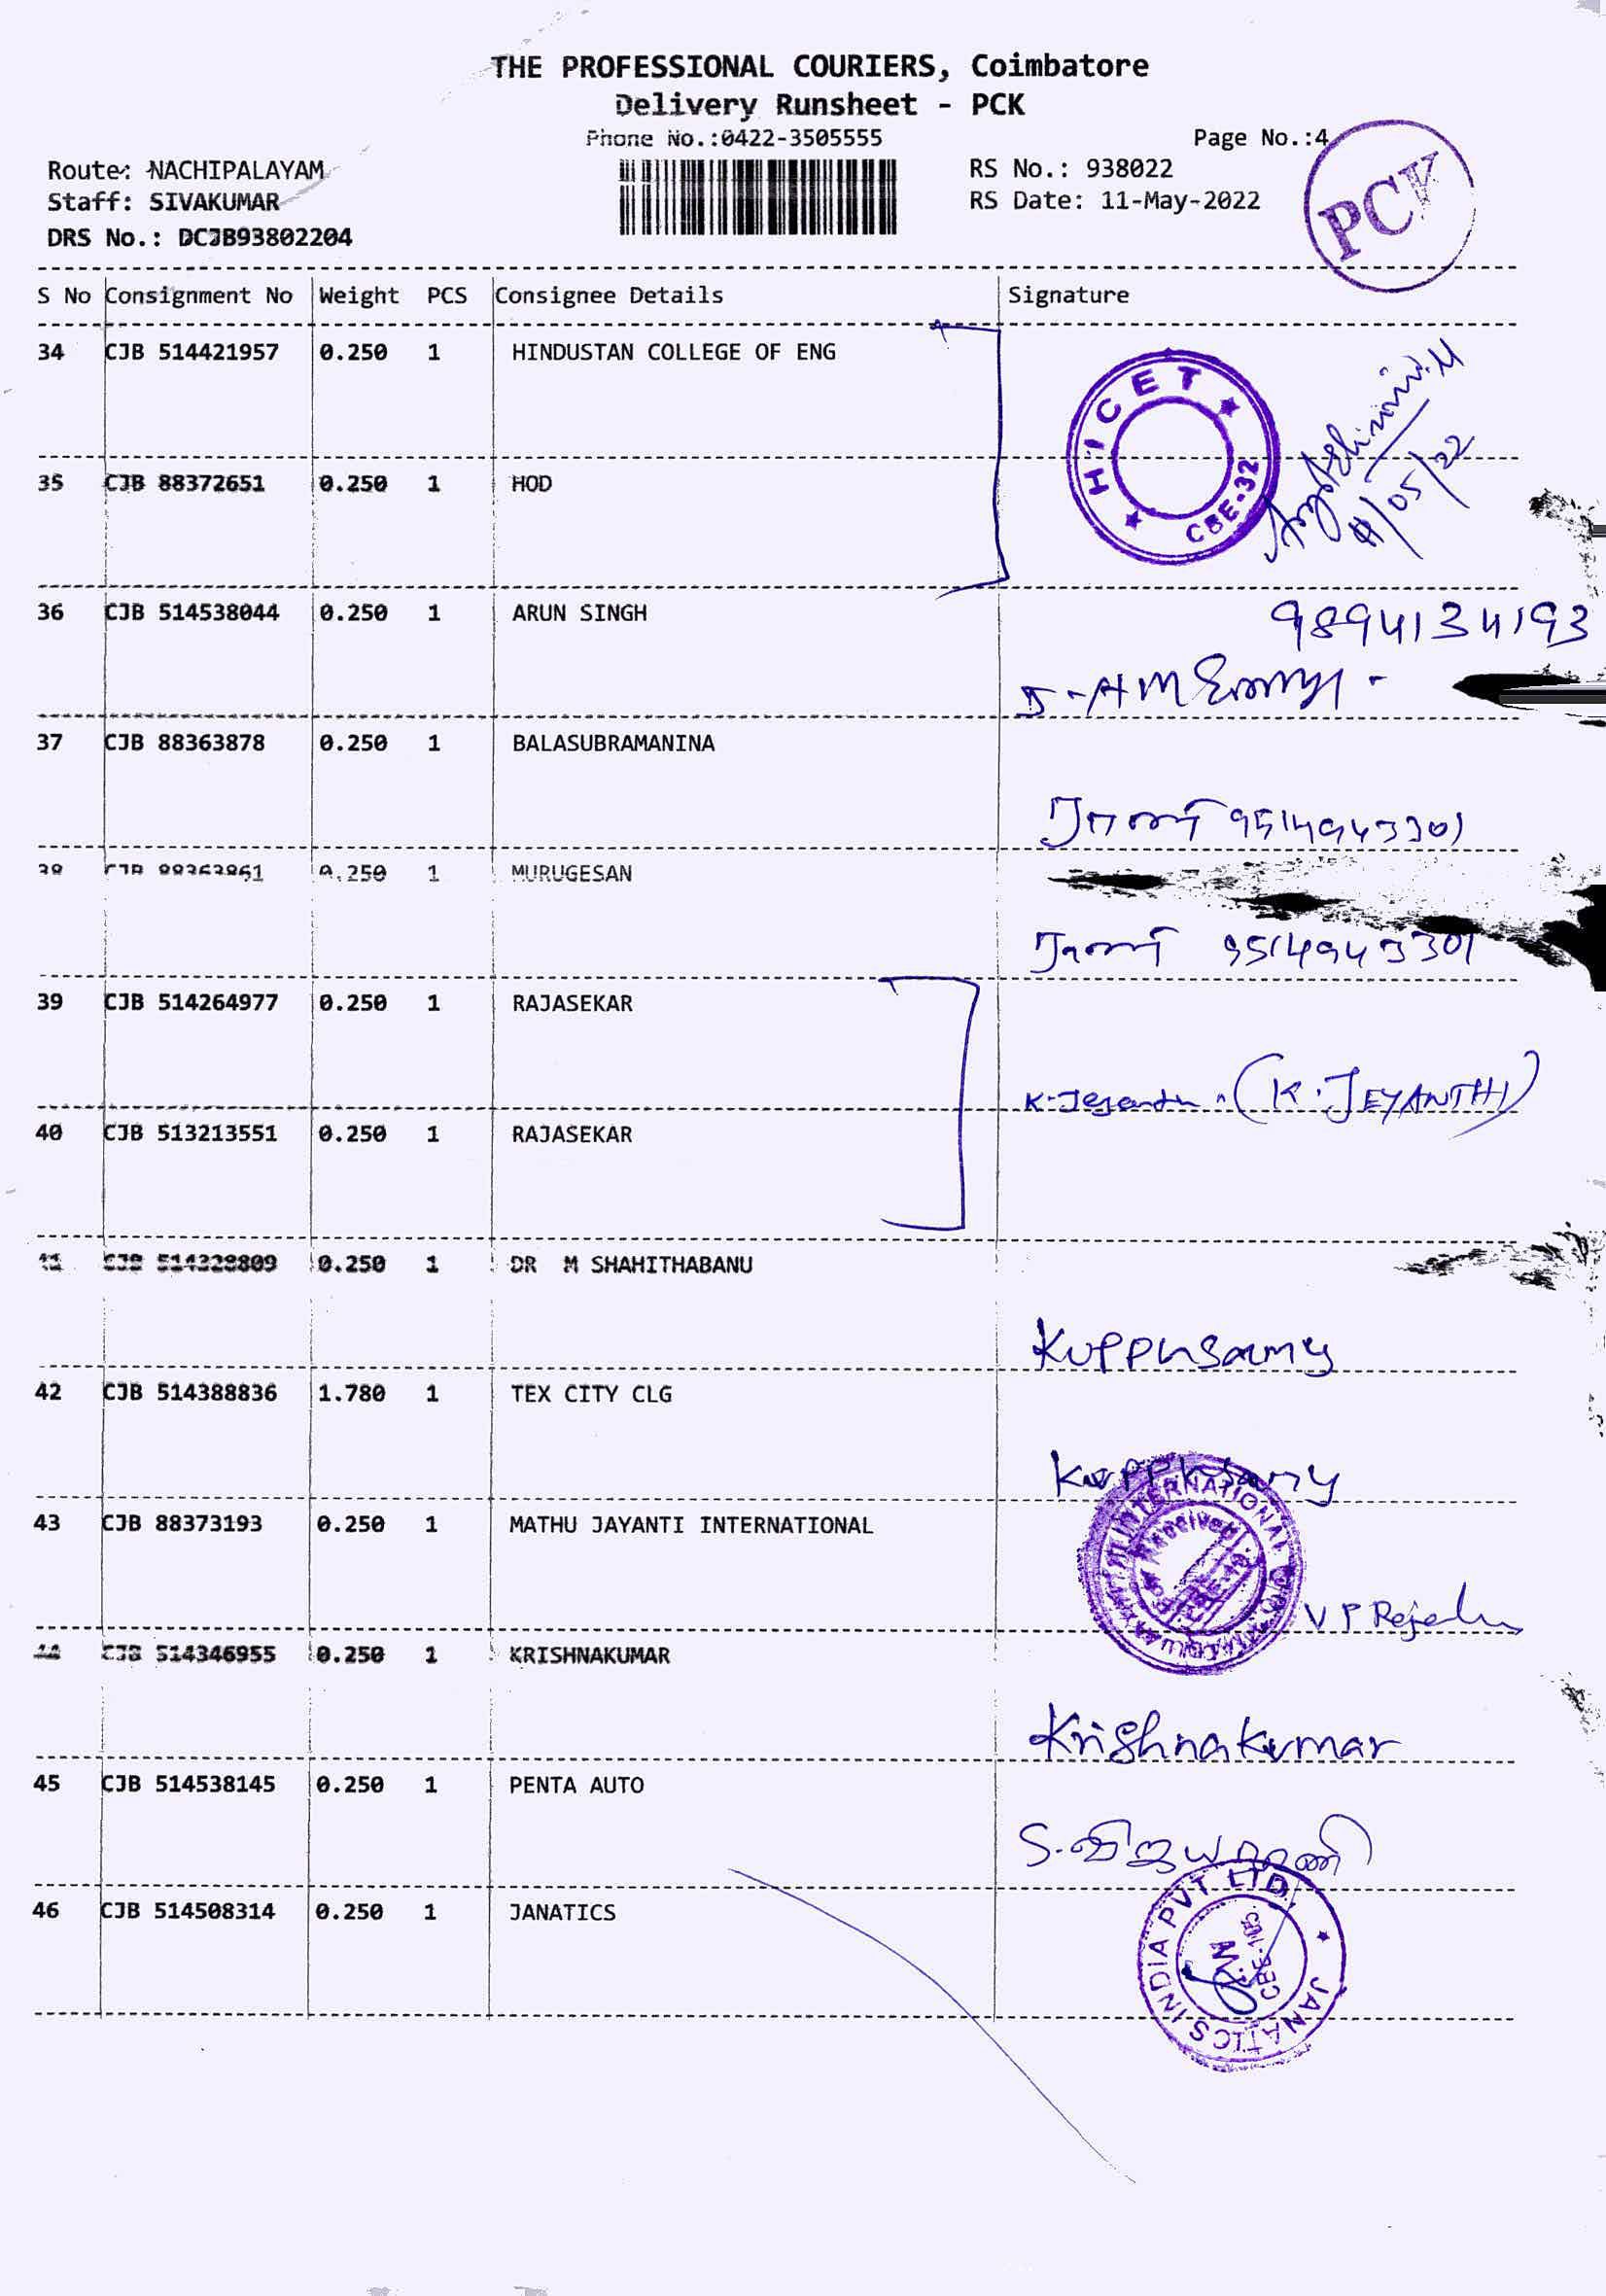 THE PROFESSIONAL COURIERS, Coimbatore
Delivery Runsheet - PCK
Phone No.:0422-3505555 Page No.:4
Route: NACHIPALAYAM RS No.: 938022
Staff: SIVAKUMAR RS Date: 11-May-2022
DRS No.: DCJB93802204
PCK
S No Consignment No Weight PCS Consignee Details Signature
34 CJB 514421957 0.250 1 HINDUSTAN COLLEGE OF ENG
HICET CBE-32
11/05/22
35 CJB 88372651 0.250 1 HOD
36 CJB 514538044 0.250 1 ARUN SINGH
9894134193
37 CJB 88363878 0.250 1 BALASUBRAMANINA
9514943301
38 CJB 88363861 0.250 1 MURUGESAN
9514943301
39 CJB 514264977 0.250 1 RAJASEKAR
(K. JEYANTHI)
40 CJB 513213551 0.250 1 RAJASEKAR
41 CJB 514328809 0.250 1 DR M SHAHITHABANU
Kuppusamy
42 CJB 514388836 1.780 1 TEX CITY CLG
Kuppusamy
43 CJB 88373193 0.250 1 MATHU JAYANTI INTERNATIONAL
INTERNATIONAL Received
V P
44 CJB 514346955 0.250 1 KRISHNAKUMAR
Krishnakumar
45 CJB 514538145 0.250 1 PENTA AUTO
S. விஜயராணி
46 CJB 514508314 0.250 1 JANATICS
JANATICS INDIA PVT LTD.